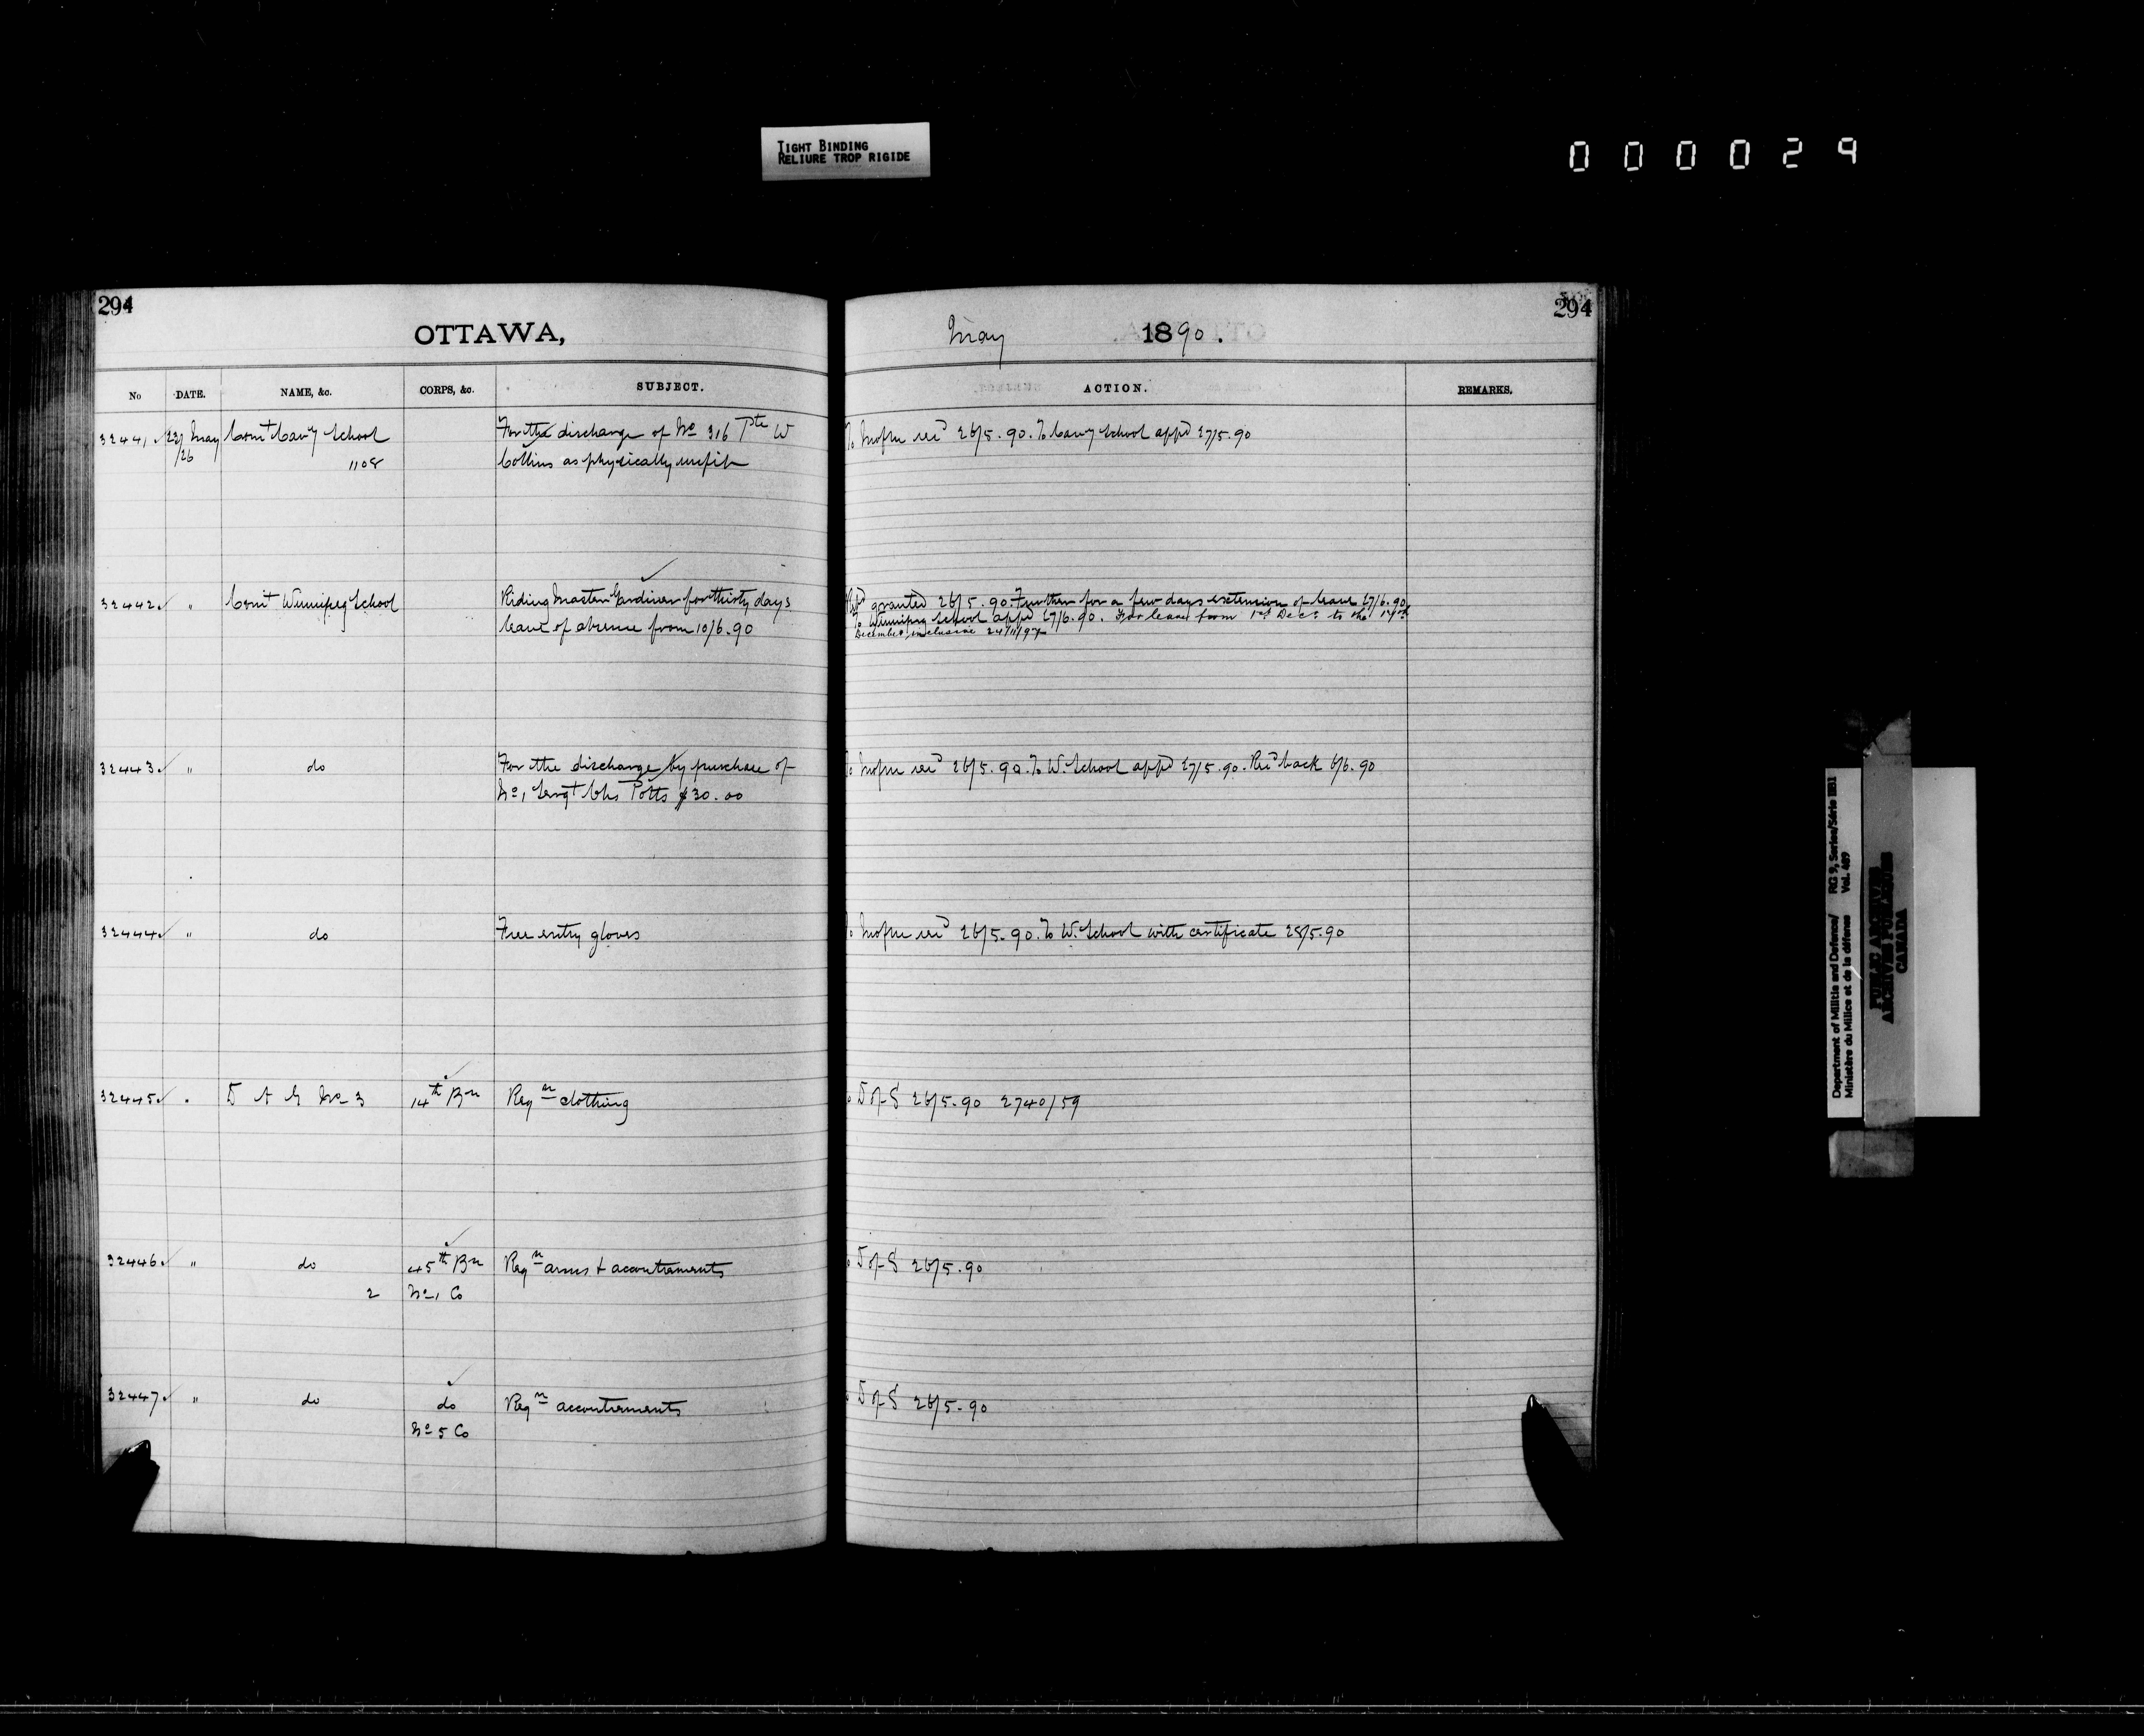 TIGHT BINDING
RELIURE TROP RIGIDE
000029
294
OTTAWA,
No DATE. NAME, &c. CORPS, &c. SUBJECT.
32441 23/ May Comt Cavy School For the discharge of No 316 Pte W
/26 1108 Collins as physically unfit
32442 " Comt Winnipeg School Riding Master Gardiner for thirty days
leave of absence from 10/6.90
32443 " do For the discharge by purchase of
No 1 Sergt Chs Potts $30.00
32444 " do Free entry gloves
32445 " D A G No 3 14th Bn Reqn clothing
32446 " do 45th Bn Reqn arms + accoutrements
2 No 1 Co
32447 " do do Reqn accoutrements
No 5 Co
294
May 1890.
ACTION. REMARKS.
To 26/5.90. To Cavy School appd 27/5.90
granted 26/5.90. Further for a few days extension of leave 27/6.90
To Winnipeg School appd 27/6.90. For leave from 1st Decr to the
December inclusive
To 26/5.90. To W. School appd 27/5.90. Recd back 6/6.90
To 26/5.90. To W. School with certificate 28/5.90
D of S 26/5.90 2740/59
D of S 26/5.90
D of S 26/5.90
Department of Militia and Defence/ RG 9, Series/Série IIB1
Ministère du Milice et de la défense Vol. 489
PUBLIC ARCHIVES
ARCHIVES PUBLIQUES
CANADA